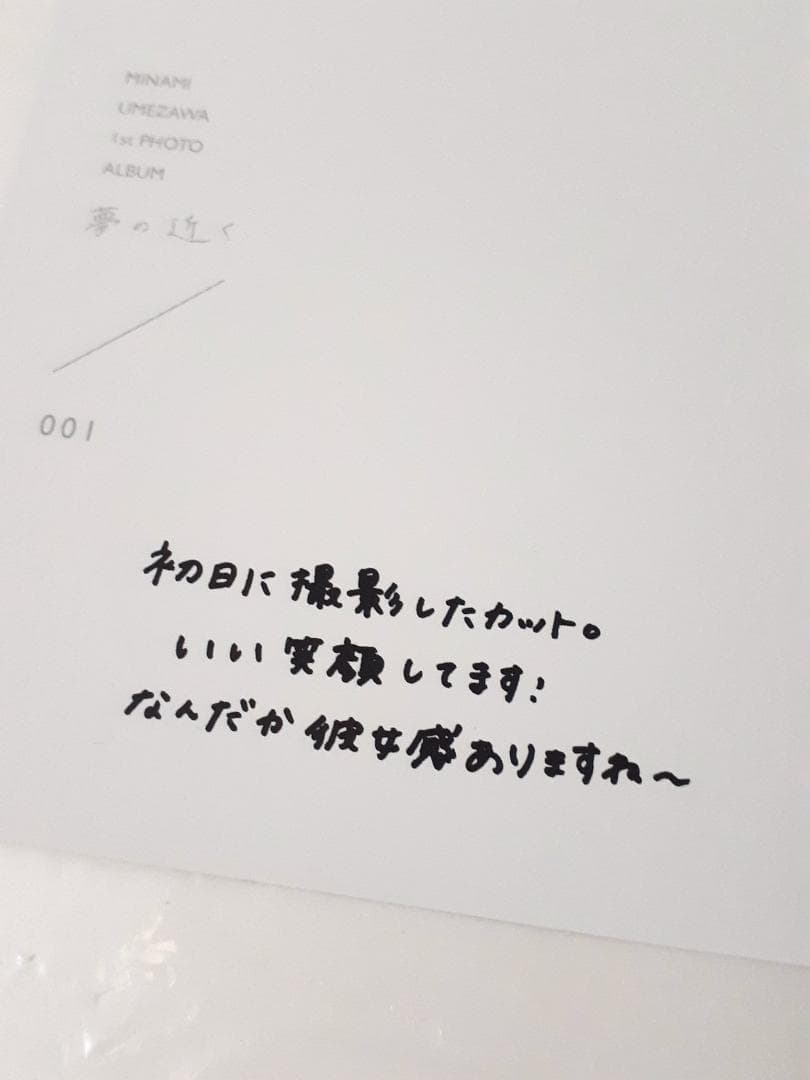 MINAMI
UMEZAWA
1st PHOTO
ALBUM
夢の近く
001
初日に撮影したカット。
いい笑顔してます!
なんだか彼女感ありますね〜